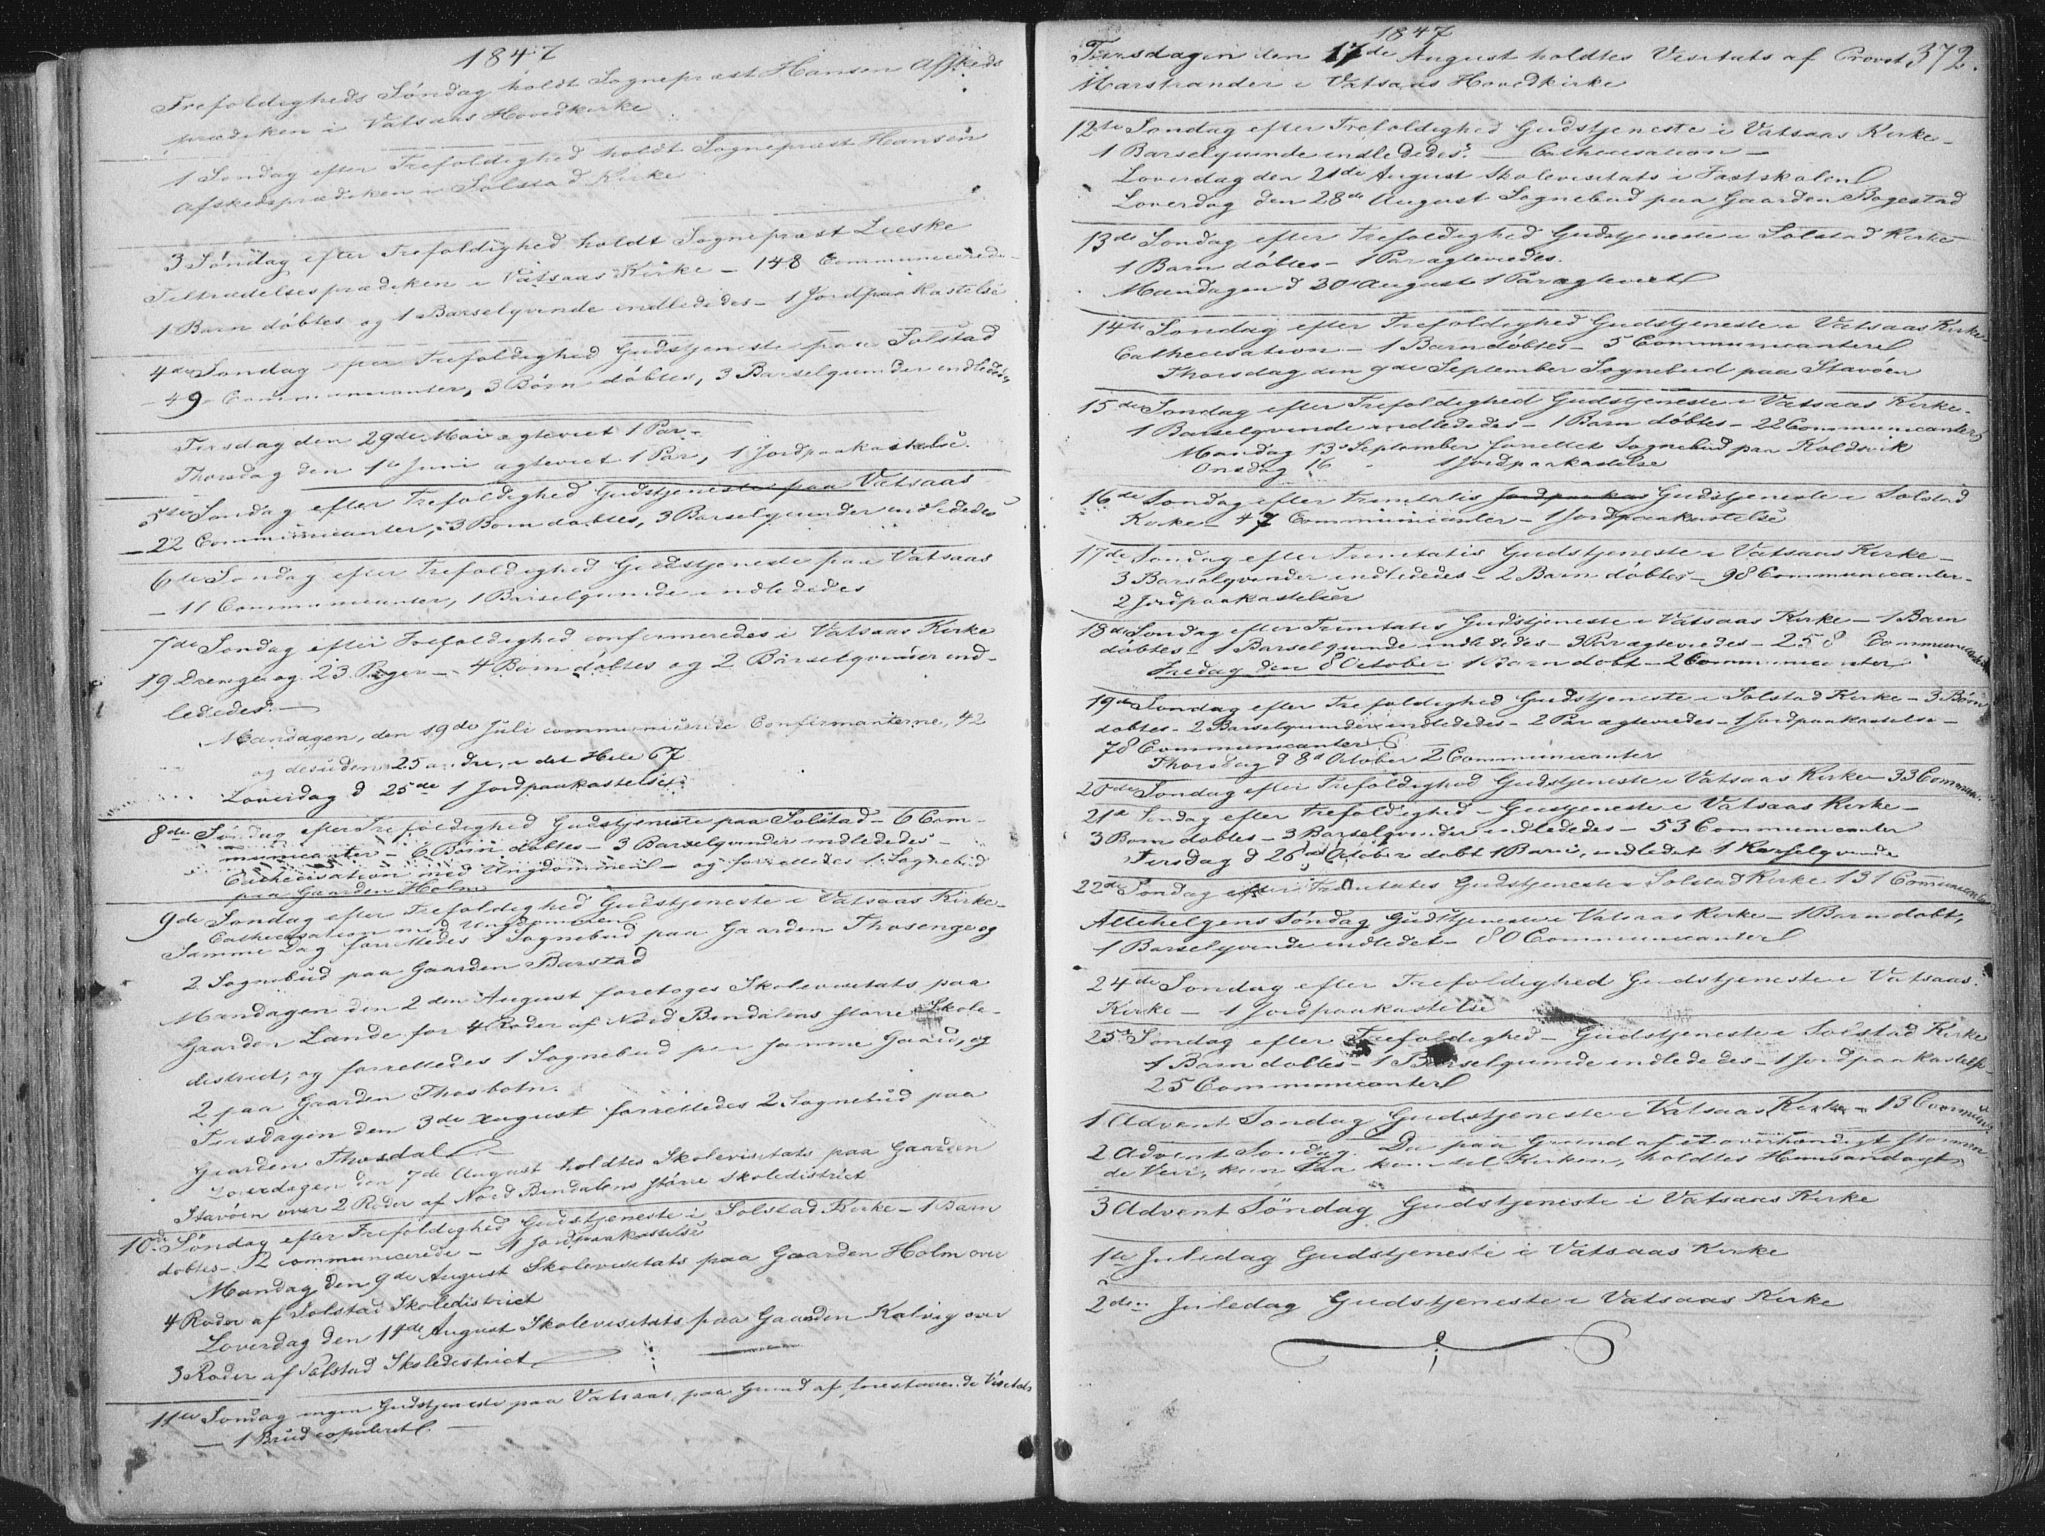 1847
Trefoldigheds Søndag holdt Sognepræst Hansen Afskeds
prædiken i Vatsaas Hovedkirke
1 Søndag efter Trefoldighed holdt Sognepræst Hansen
Afskedsprædiken i Solstad Kirke
3 Søndag efter Trefoldighed holdt Sognepræst
Tiltrædelsesprædiken i Vatsaas Kirke – 148 Communicerede
1 Barn døbtes og 1 Barselqvinde indlededes – 1 Jordpaakastelse
4de Søndag efter Trefoldighed Gudstjeneste paa Solstad
– 49 Communicanter, 3 Børn døbtes, 3 Barselqvinder indlededes
Tirsdag den 29de Mai ægteviet 1 Par –
Thorsdag den 1te Juni ægteviet 1 Par, 1 Jordpaakastelse.
5te Søndag efter Trefoldighed Gudstjeneste paa Vatsaas
– 22 Communicanter, 3 Børn døbtes, 3 Barselqvinder indlededes
6te Søndag efter Trefoldighed Gudstjeneste paa Vatsaas
– 11 Communicanter, 1 Barselqvinde indlededes
7de Søndag efter Trefoldighed confirmeredes i Vatsaas Kirke
19 Drenge og 23 Piger – 4 Børn døbtes og 2 Barselqvinder ind-
lededes. –
Mandagen, den 19de Juli communicerede Confirmanterne, 42
og desuden 25 andre, i det Hele 67
Løverdag d 25de 1 Jordpaakastelse
8de Søndag efter Trefoldighed Gudstjeneste paa Solstad – 6 Com-
municanter – 6 Børn døbtes – 3 Barselqvinder indlededes –
Cathecisation med Ungdommen – og forrettedes 1 Sognebud
paa Gaarden Holm
9de Søndag efter Trefoldighed Gudstjeneste i Vatsaas Kirke –
Cathecisation med Ungdommen
Samme Dag forrettedes 3 Sognebud paa Gaarden Thosenge og
2 Sognebud paa Gaarden Barstad
Mandagen den 2den August foretoges Skolevisitats paa
Gaarden Lande for 4 Roder af Nord Bindalens større Skole-
district, og forrettedes 1 Sognebud per samme Gaard, og
2 paa Gaarden Thosbotn.
Tirsdagen den 3de August forrettedes 2 Sognebud paa
Gaarden Thosdal
Løverdagen den 7de August holdtes Skolevisitats paa Gaarden
Stavøen over 2 Roder af Nord Bindalens større Skoledistrict
10de Søndag efter Trefoldighed Gudstjeneste i Solstad Kirke – 1 Barn
døbtes – 2 communicerede – 1 Jordpaakastelse
Mandag den 9de August Skolevisitats paa Gaarden Holm over
4 Roder af Solstad Skoledistrict
Løverdag den 14de August Skolevisitats paa Gaarden Kalvig over
3 Roder af Solstad Skoledistrict
11te Søndag ingen Gudstjeneste paa Vatsaas, paa Grund af forestaaende Visitats
– 1 Brud copuleret. –
1847
372.
Tirsdagen den 17de August holdtes Visitats af Provst
Marstrander i Vatsaas Hovedkirke
12te Søndag efter Trefoldighed Gudstjeneste i Vatsaas Kirke –
1 Barselqvinde indlededes. – Cathecisation –
Løverdag den 21de August Skolevisitats i Fastskolen
Løverdag den 28de August Sognebud paa Gaarden Bøgestad
13de Søndag efter Trefoldighed Gudstjeneste i Solstad Kirke
1 Barn døbtes – 1 Par ægteviedes.
Mandagen d 30 August 1 Par ægteviet
14te Søndag efter Trefoldighed Gudstjeneste i Vatsaas Kirke
Cathecisation – 1 Barn døbtes – 5 Communicanter
Thorsdag den 9de September Sognebud paa Stavøen
15de Søndag efter Trefoldighed Gudstjeneste i Vatsaas Kirke –
1 Barselqvinde indlededes – 1 Barn døbtes – 22 Communicanter
Mandag 13 September forrettet Sognebud paa Koldsvik
Onsdag 16 – 1 Jordpaakastelse
16de Søndag efter Trinitatis Jordpaakas Gudstjeneste i Solstad
Kirke – 47 Communicanter – 1 Jordpaakastelse
17de Søndag efter Trinitatis Gudstjeneste i Vatsaas Kirke –
3 Barselqvinder indlededes – 2 Børn døbtes – 98 Communicanter –
2 Jordpaakastelser
18de Søndag efter Trinitatis Gudstjeneste i Vatsaas Kirke – 1 Barn
døbtes – 1 Barselqvinde indlededes – 3 Par ægteviedes – 258 Communicanter
Fredag den 8 October 1 Barn døbt – 2 Communicanter
19de Søndag efter Trefoldighed Gudstjeneste i Solstad Kirke – 3 Børn
døbtes – 2 Barselqvinder indlededes – 2 Par ægteviedes – 1 Jordpaakastelse –
78 Communicanter
Thorsdag d 8d October 2 Communicanter
20de Søndag efter Trefoldighed Gudstjeneste i Vatsaas Kirke – 33 Commun.
21de Søndag efter Trefoldighed – Gustjeneste i Vatsaas Kirke –
3 Børn døbtes – 3 Barselqvinder indlededes – 53 Communicanter
Tirsdag d 26de October døbt 1 Barn, indledet 1 Barselqvinde
22de Søndag efter Trinitatis Gudstjeneste i Solstad Kirke 131 Communicanter
Allehelgens Søndag Gudstjeneste i Vatsaas Kirke – 1 Barn døbt,
1 Barselqvinde indledet – 80 Communicanter
24de Søndag efter Trefoldighed Gudstjeneste i Vatsaas
Kirke – 1 Jordpaakastelse
25de Søndag efter Trefoldighed – Gudstjeneste i Solstad Kirke
1 Barn døbtes – 1 Barselqvinde indlededes – 1 Jordpaakastelse –
25 Communicanter
1 Advent Søndag Gudstjeneste i Vatsaas Kirke – 13 Commun.
2 Advent Søndag. Da paa Grund af et overhændigt stormen
de Veir, kun faa kom til Kirken, holdtes Huusandagt
3 Advent Søndag Gudstjeneste i Vatsaas Kirke
1te Juledag Gudstjeneste i Vatsaas Kirke
2den Juledag Gudstjeneste i Vatsaas Kirke